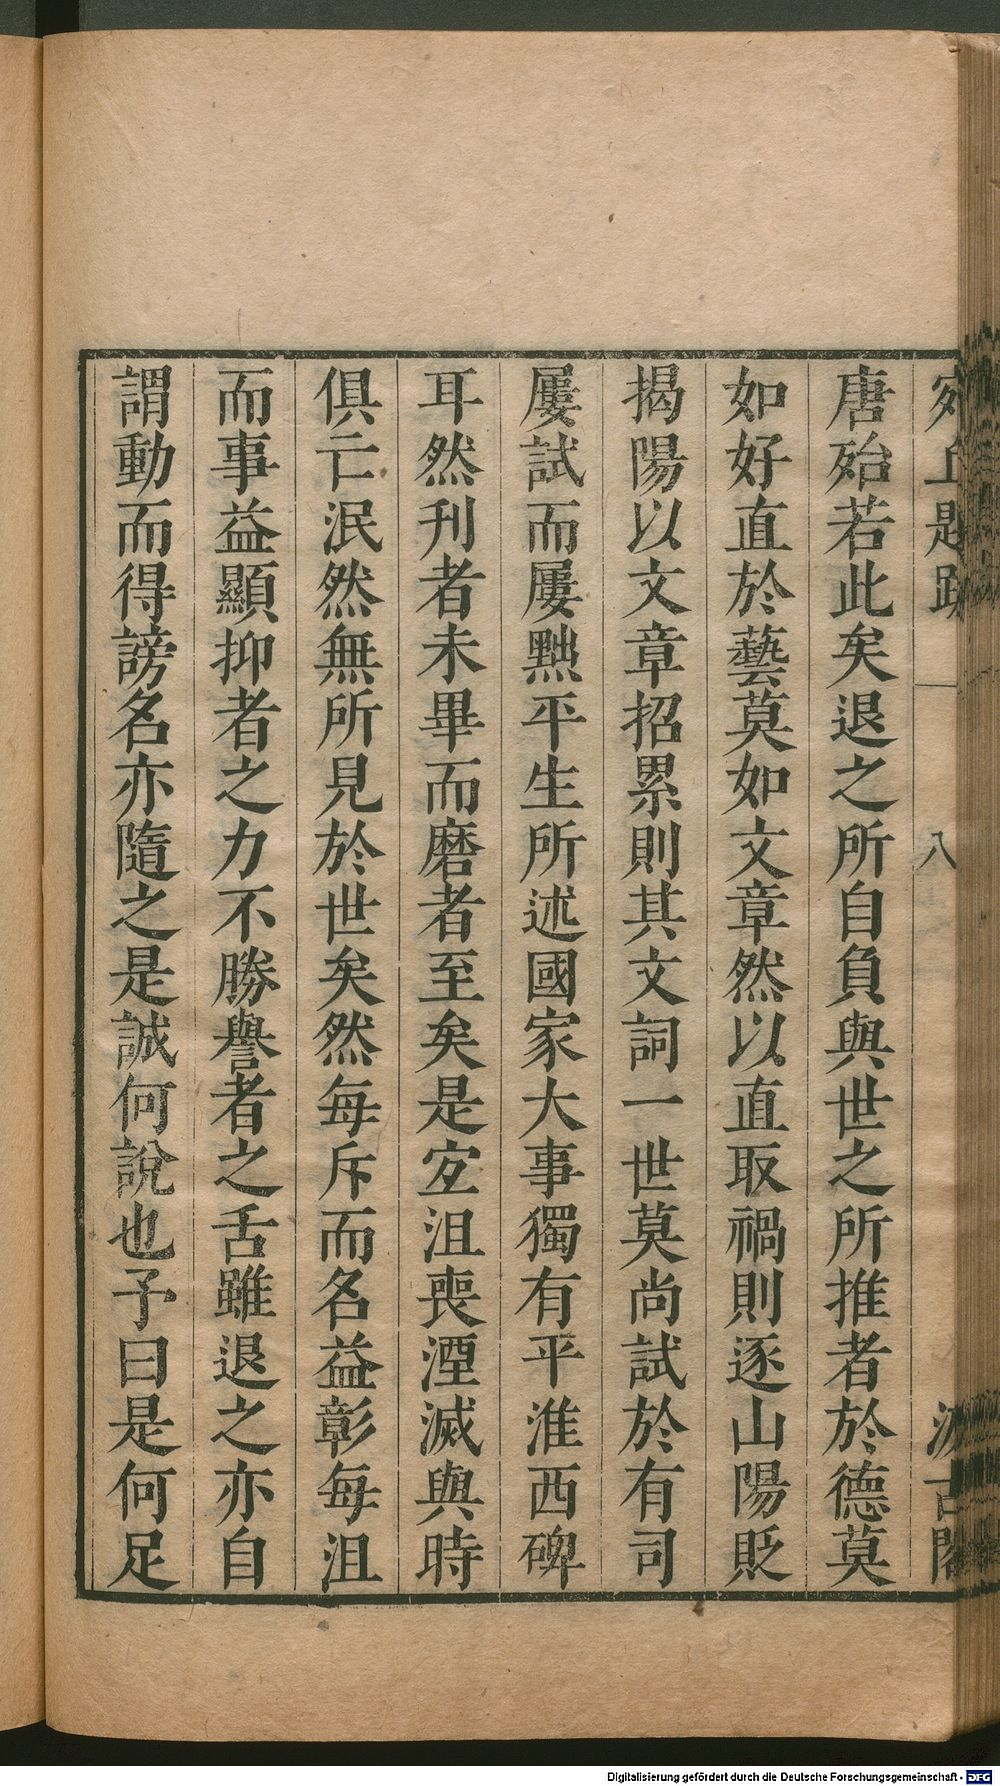 宛丘題跋 八 汲古閣
唐殆若此矣退之所自負與世之所推者於德莫
如好直於藝莫如文章然以直取禍則逐山陽貶
揭陽以文章招累則其文詞一世莫尚試於有司
屢試而屢黜平生所述國家大事獨有平淮西碑
耳然刊者未畢而磨者至矣是宐沮喪湮滅與時
俱亡泯然無所見於世矣然每斥而名益彰每沮
而事益顯抑者之力不勝譽者之舌雖退之亦自
謂動而得謗名亦隨之是誠何說也予曰是何足
Digitalisierung gefördert durch die Deutsche Forschungsgemeinschaft - DFG